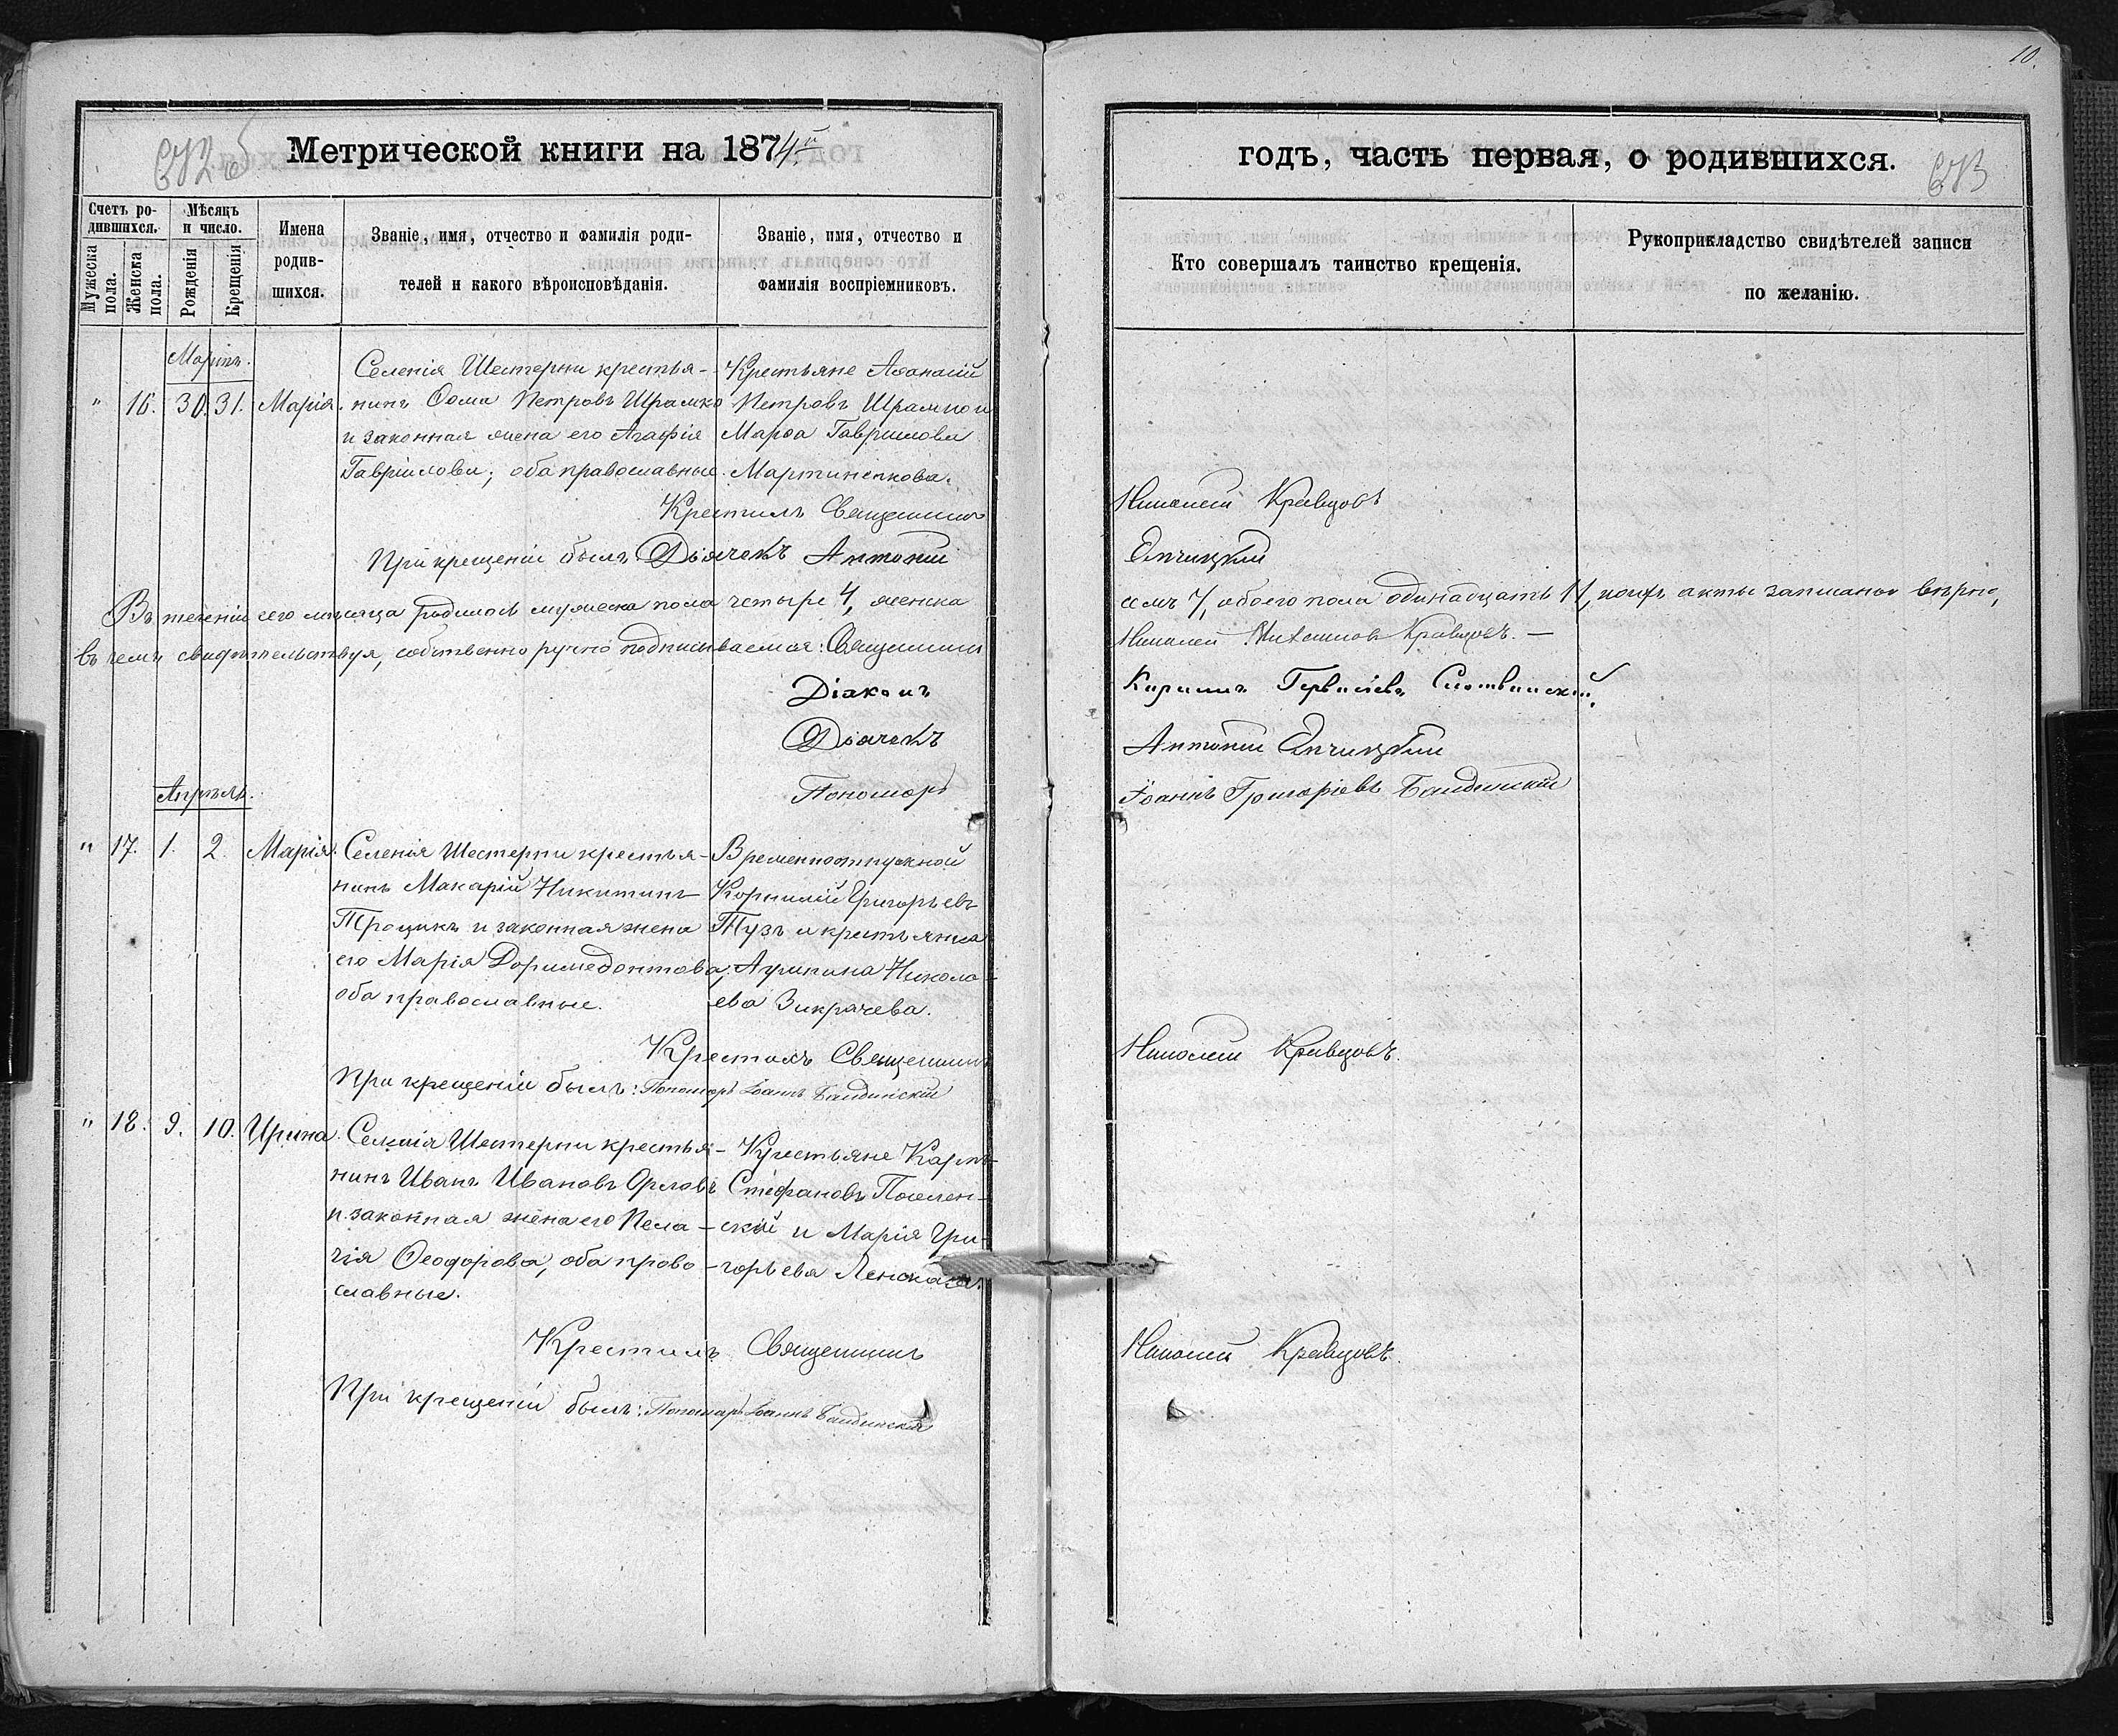 10.
672 об
Метрической книги на 1874й
годъ, часть первая, о родившихся.
673
Счетъ ро-
дившихся.
Мужеска
пола.
Женска
пола.
Мѣсяцъ
и число.
Рожденія
Крещенія
Имена
родив-
шихся.
Званіе, имя, отчество и фамилія роди-
телей и какого вѣроисповѣданія.
Званіе, имя, отчество и
фамилія воспріемниковъ.
Кто совершалъ таинство крещенія.
Рукоприкладство свидѣтелей записи
по желанію.
Мартъ.
" 16. 30. 31. Марія.
Селенія Шестерни крестья-
нинъ Ѳома Петровъ Шрамко
и законная жена его Агафія
Гавріилова; оба православные.
Крестьяне Аѳанасій
Петровъ Шрамко и
Марѳа Гаврилова
Мартиненкова.
Крестилъ Священникъ Николай Кравцовъ
При крещеніи былъ Дьячекъ Антоній
Въ теченіи сего мѣсяца родилось мужеска пола четыре 4, женска семь 7, обоего пола одинадцать 11, коихъ акты записаны вѣрно,
въ чемъ свидѣтельствуя, собственно ручно подписываемся: Священникъ Николай Кравцовъ. —
Діаконъ Кириллъ
Дьячекъ Антоній
Пономарь Іоаннъ Григорьевъ Бандинскій
Апрѣль.
" 17. 1. 2. Марія.
Селенія Шестерни крестья-
нинъ Макарій Никитинъ
Троцикъ и законная жена
его Марія Доримедонтова,
оба православные.
Временноотпускной
Корнилій Григорьевъ
Тузъ и крестьянка
Агрипина Никола-
ева Зикрачева.
Крестилъ Священникъ Николай Кравцовъ.
При крещеніи былъ: Пономарь Іоаннъ Бандинскій
" 18. 9. 10. Ирина.
Селенія Шестерни крестья-
нинъ Иванъ Ивановъ Орловъ
и законная жена его Пела-
гія Ѳеодорова, оба право-
славные.
Крестьяне Карпъ
Стефановъ Поселен-
скій и Марія Гри-
горьева
Крестилъ Священникъ Николай Кравцовъ.
При крещеніи былъ: Пономарь Іоаннъ Бандинскій